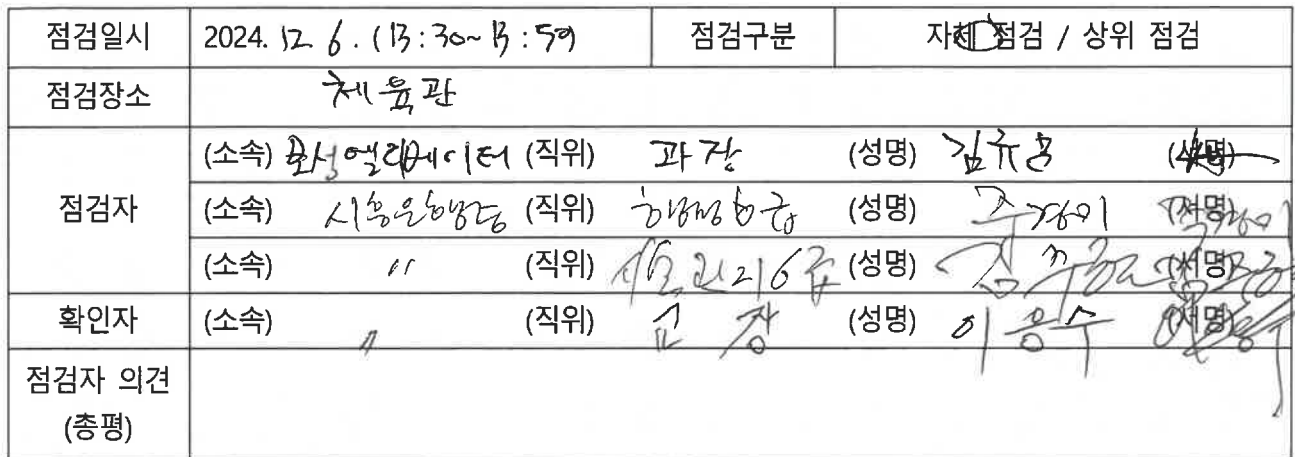 점검일시 2024. 12. 6. (13:30~13:59) 점검구분 자체 점검 / 상위 점검
점검장소 체육관
점검자
(소속) 엘리베이터 (직위) 과장 (성명) (서명)
(소속) (직위) (성명) 주경미 (서명)
(소속) 〃 (직위) 시설관리6급 (성명) (서명)
확인자 (소속) 〃 (직위) 교장 (성명) 이응수 (서명)
점검자 의견
(총평)